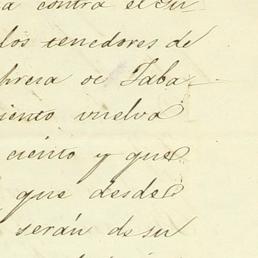 a contra el Su
los tenedores de
breria de Taba
iento vuelva
ciento y que
que desde
serán de su